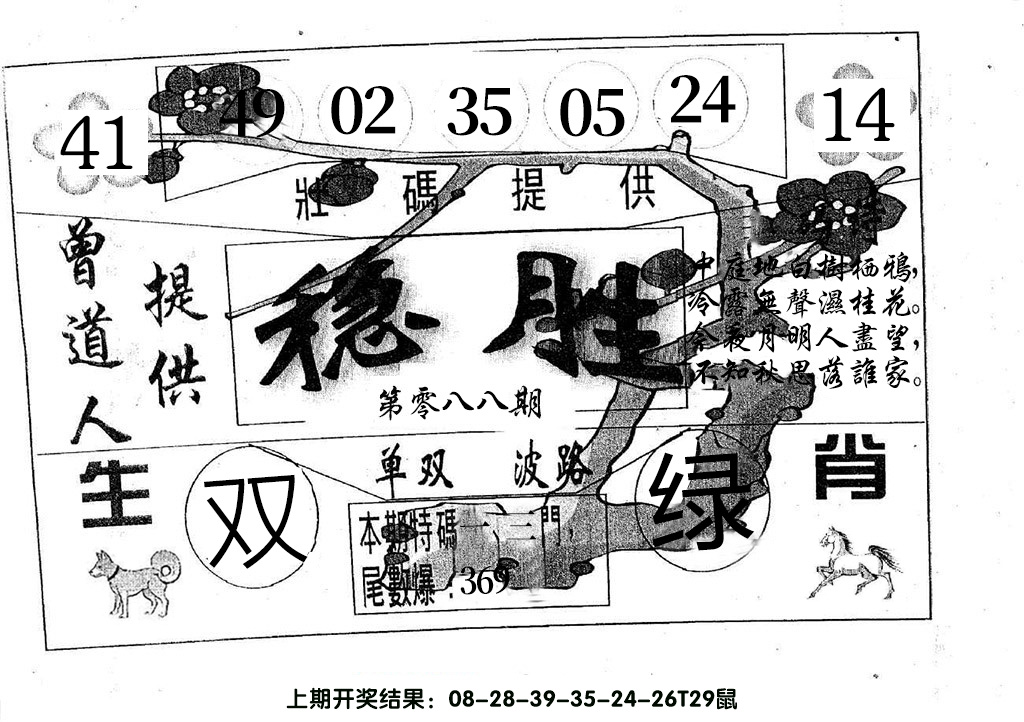 41 49 02 35 05 24 14
壯碼提供
曾道人
提供
稳胜
第零八八期
中庭地白樹栖鴉，
冷露無聲濕桂花。
今夜月明人盡望，
不知秋思落誰家。
单双 波路
生肖
双
绿
本期特碼一、三門，
尾數爆：369
上期开奖结果：08-28-39-35-24-26T29鼠